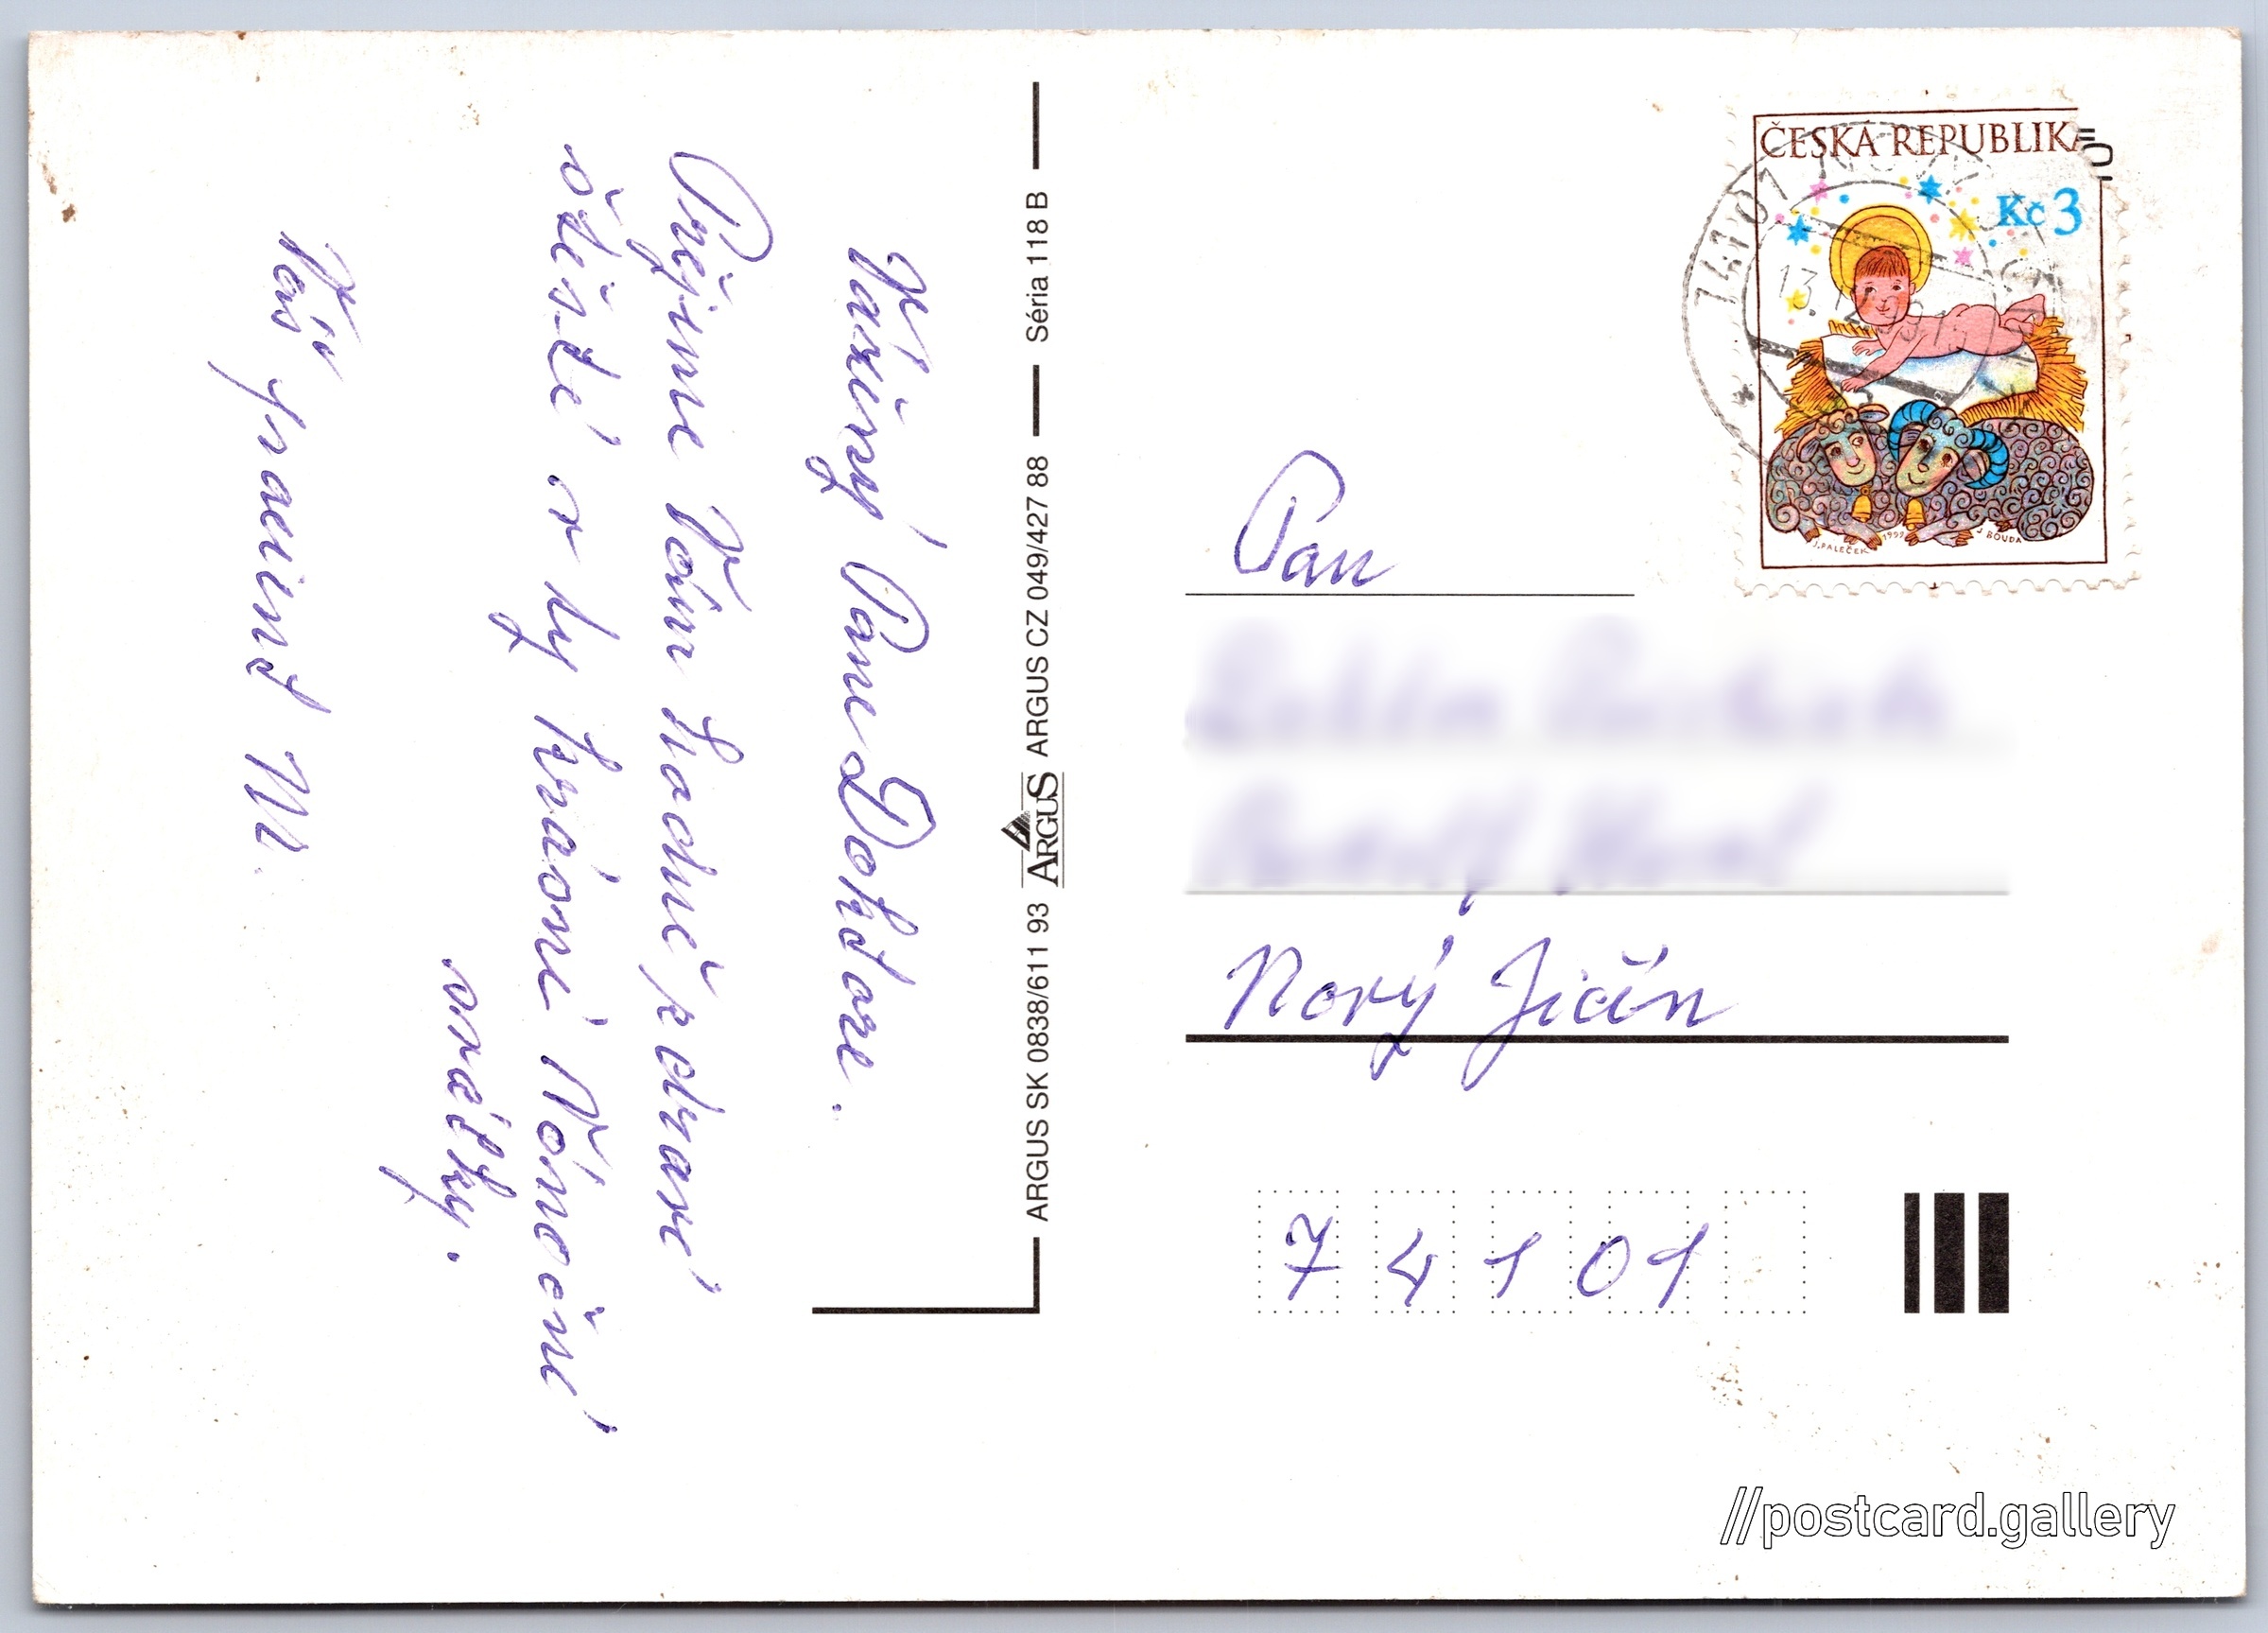 Vážený Pane Doktore.
Přejeme Vám hodně zdraví
štěstí a ty krásné Vánoční
svátky.
Váš pacient M.
Séria 118 B
ARGUS CZ 049/427 88
ARGUS
ARGUS SK 0838/611 93
ČESKÁ REPUBLIKA
Kč 3
J. PALEČEK 1999 J BOUDA
741 01
13. 12.
Pan
Nový Jičín
74101
//postcard.gallery